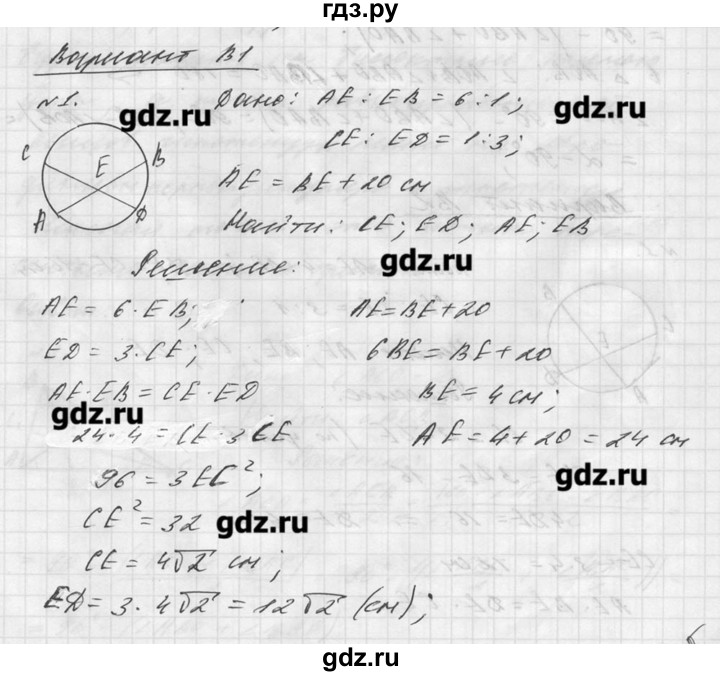 гдз.ру
Вариант В1
№1.
Дано: AE : EB = 6 : 1;
gdz.ru
gdz.ru
CE : ED = 1 : 3;
C
E
B
A
D
AE = BE + 20 см
Найти: CE; ED; AE; EB
gdz.ru
Решение:
AE = 6 · EB;
AE = BE + 20
ED = 3 · CE;
6BE = BE + 20
AE · EB = CE · ED
BE = 4 см;
gdz.ru
24 · 4 = CE · 3CE
AE = 4 + 20 = 24 см
96 = 3EC²;
gdz.ru
CE² = 32
gdz.ru
CE = 4√2 см;
ED = 3 · 4√2 = 12√2 (см);
gdz.ru